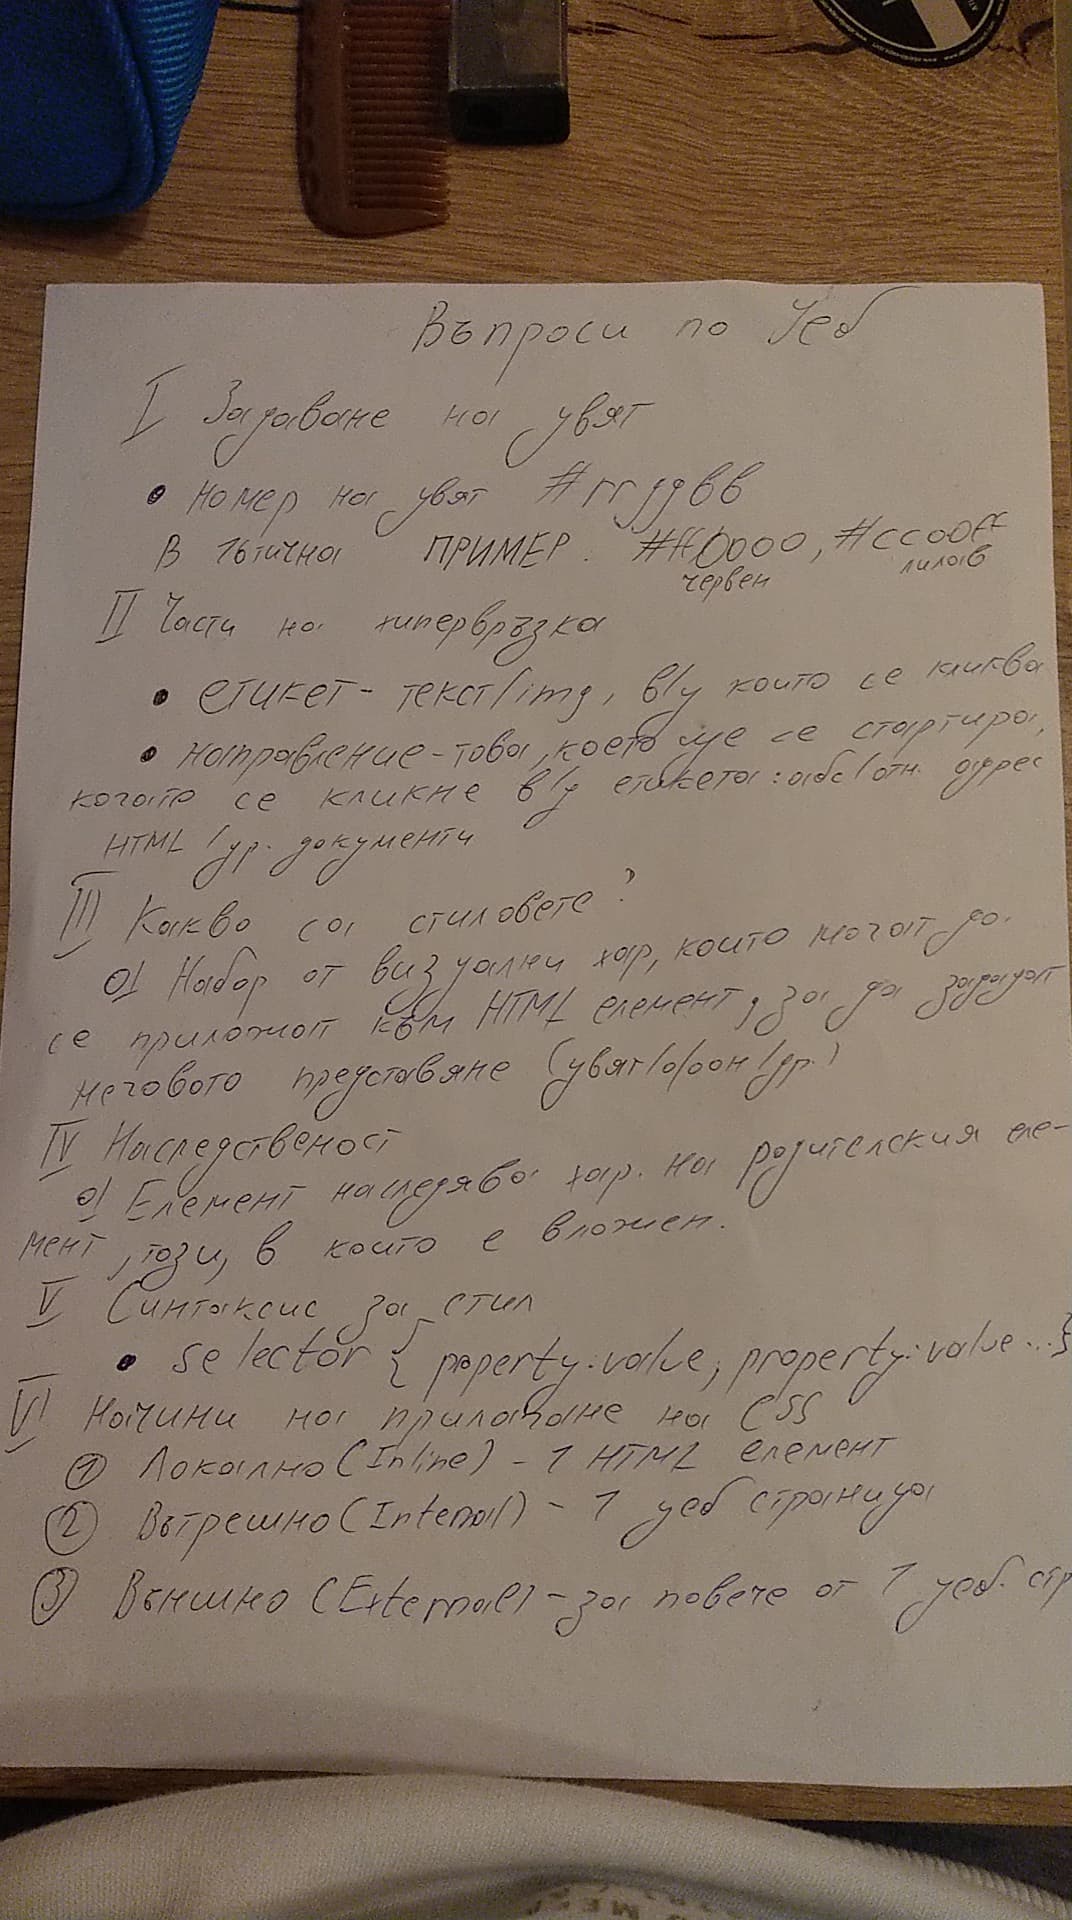 Въпроси по Уеб
I Задаване на цвят
• номер на цвят #rrggbb
в 16тична ПРИМЕР. #ff0000, #cc00ff
червен лилав
II Части на хипервръзка
• етикет - текст/img, в/у който се кликва
• направление - това, което ще се стартира,
когато се кликне в/у етикета: абс/отн. адрес
HTML / др. документи
III Какво са стиловете?
о/ Набор от визуални хар, които могат да
се приложат към HTML елемент, за да зададат
неговото представяне (цвят/фон/др.)
IV Наследственост
о/ Елемент наследява хар. на родителския еле-
мент, този, в който е вложен.
V Синтаксис за стил
• selector { property:value; property:value...}
VI Начини на прилагане на CSS
1 Локално (Inline) - 1 HTML елемент
2 Вътрешно (Internal) - 1 уеб страница
3 Външно (External) - за повече от 1 уеб. стр